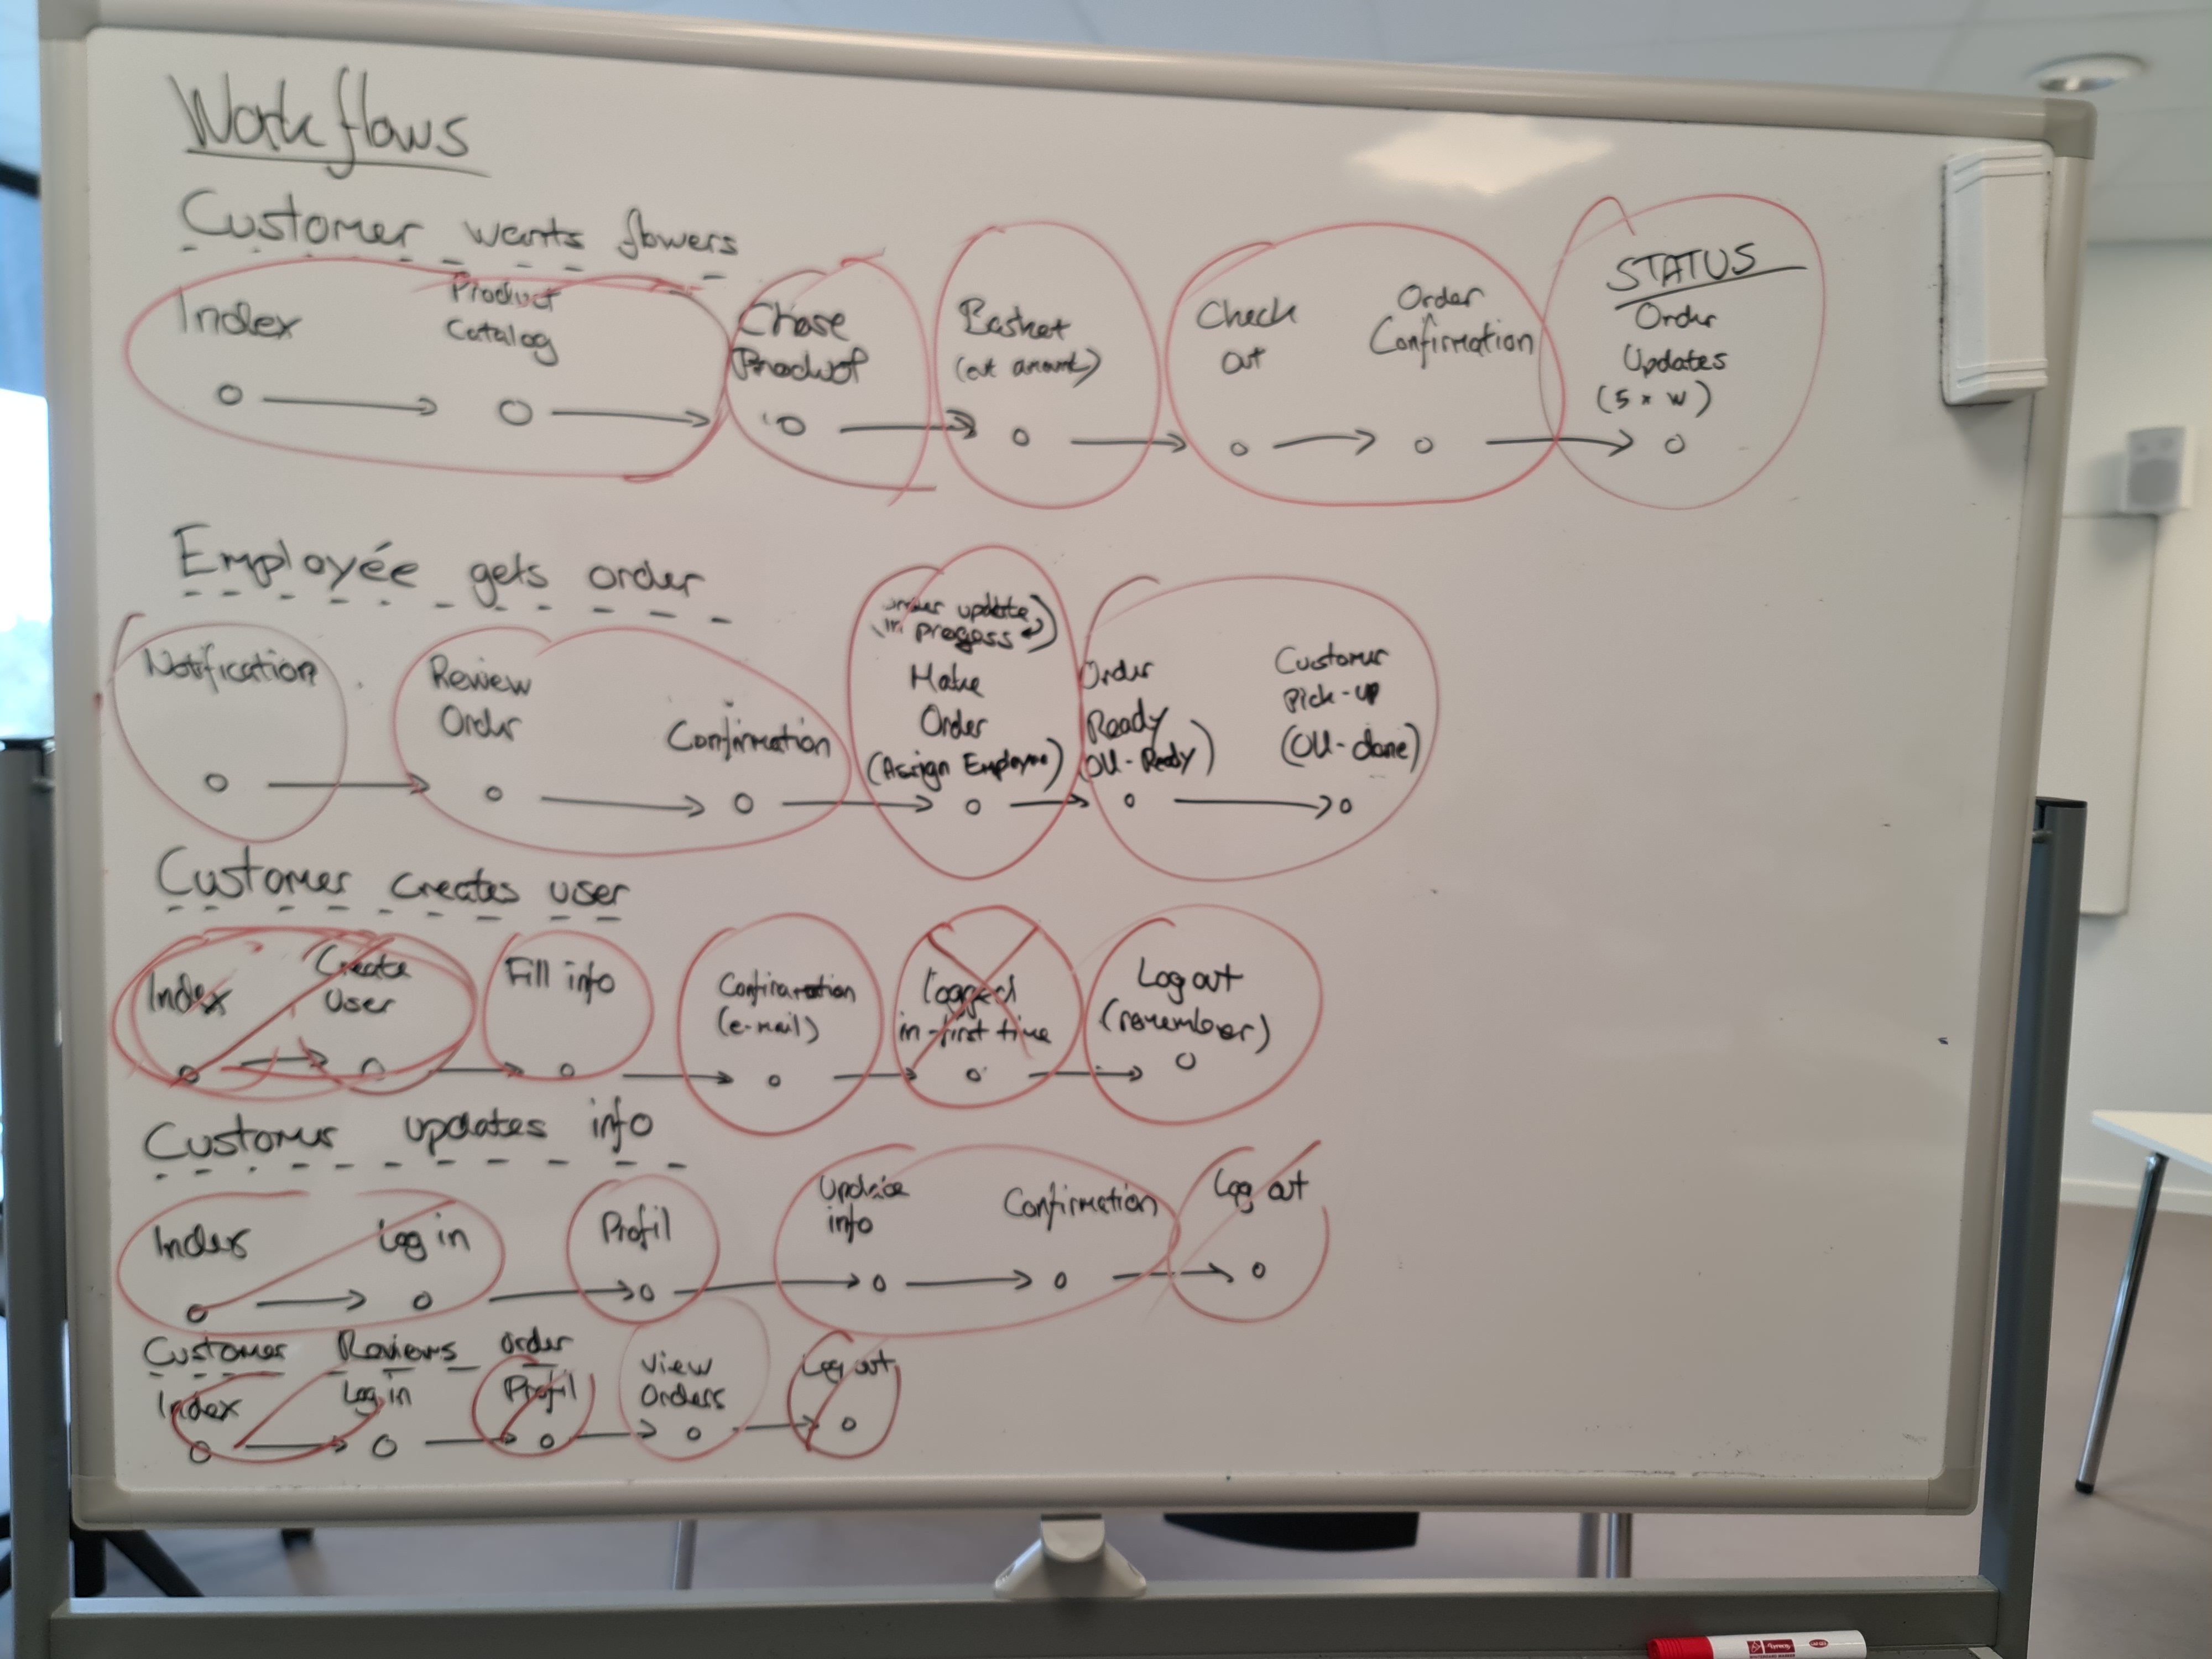 Workflows
Customer wants flowers
Index
Product
Catalog
Chose
Product
Basket
Check
out
Order
Confirmation
STATUS
Order
Updates
(5 x W)
Employée gets order
Notification
Review
Order
Confirmation
order update
in progess
Make
Order
(Assign Employee)
Order
Ready
(OU-Ready)
Customer
Pick-up
(OU-done)
Customer creates user
Index
Create
User
Fill info
Confirmation
(e-mail)
logged
in-first time
Log out
(remember)
Customer updates info
Index
Log in
Profil
Update
info
Confirmation
Log out
Customer Reviews order
Index
Log in
Profil
View
Orders
Log out